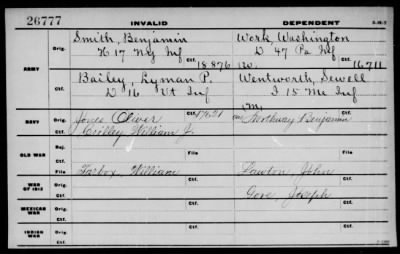 26777 INVALID DEPENDENT
Smith, Benjamin Work, Washington
Orig. H 17 Ny Inf D 47 Pa Inf
Ctf. 18 876 Ctf. 16711
ARMY
Bailey, Lyman P. Wentworth, Sewell
Orig. D 16 Vt Inf I 15 Me Inf
Ctf. Ctf.
NAVY Orig. Jones Oliver Northway Benjamin
Ctf. William J.
OLD WAR Rej. File
Ctf. File
WAR OF 1812 Orig. Tarbox, William Lawton, John
Ctf. Gove, Joseph
MEXICAN WAR Orig.
Ctf.
INDIAN WAR Orig.
Ctf.